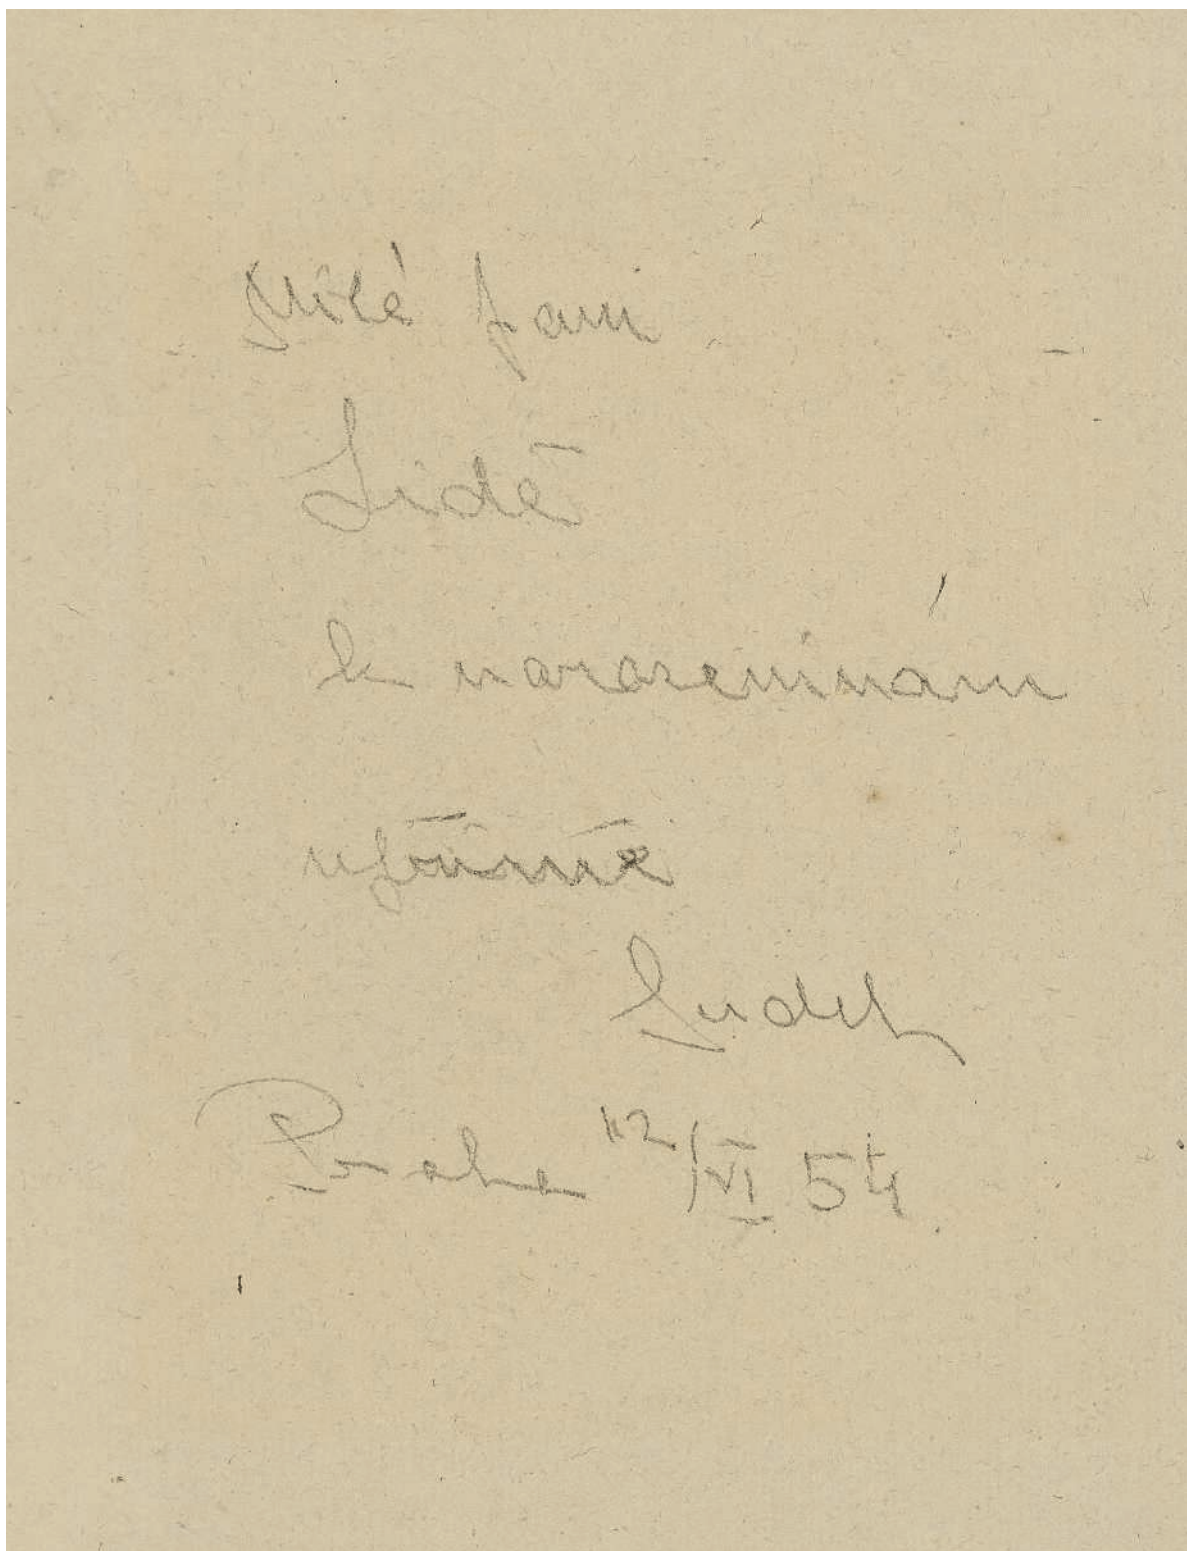 Milé paní
Lidě
k narozeninám
upřímně
Luděk
Praha 12/VI 54